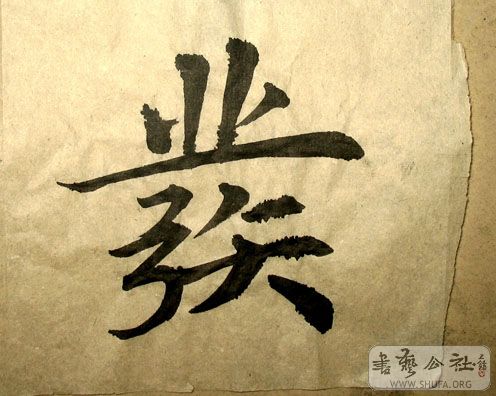 發
書藝公社
WWW.SHUFA.ORG